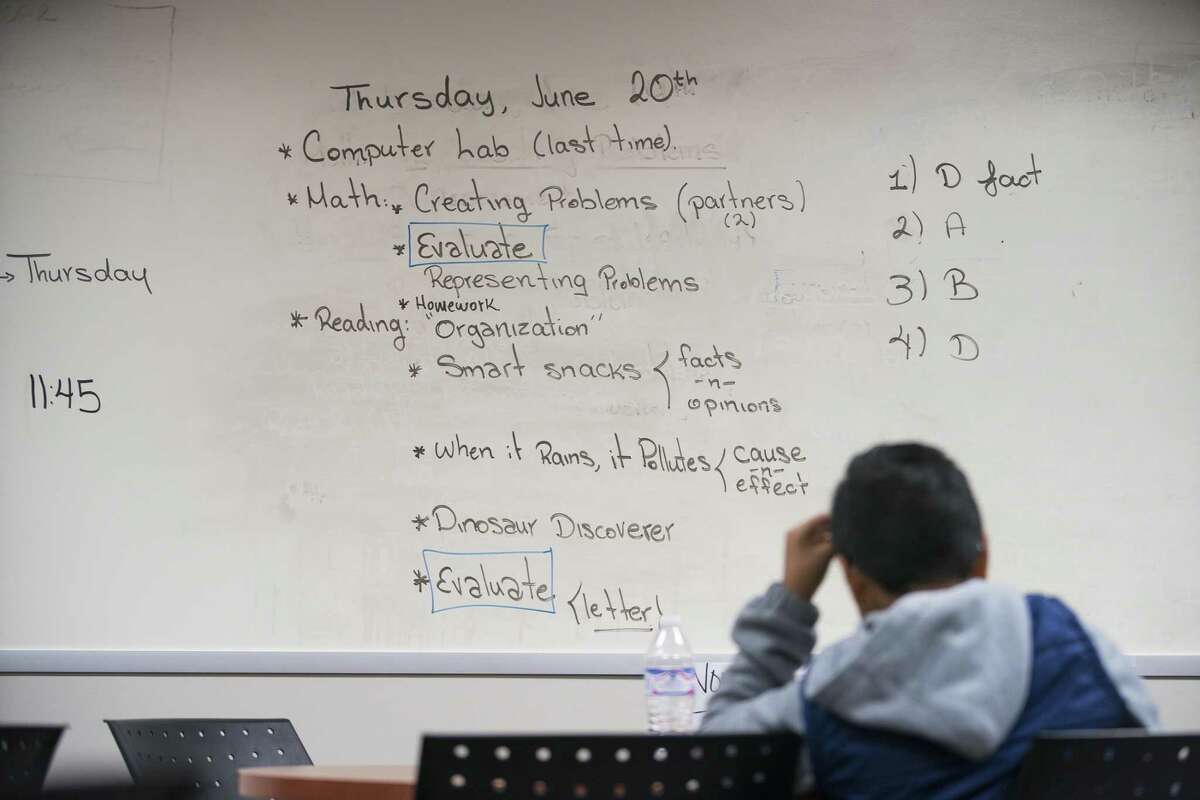 Thursday, June 20th
* Computer Lab (last time).
* Math: * Creating Problems (partners)
(2)
* Evaluate
Representing Problems
* Homework
* Reading: "Organization"
* Smart snacks { facts
-n-
opinions
* When it Rains, it Pollutes { cause
-n-
effect
* Dinosaur Discoverer
* Evaluate { letter }
→ Thursday
11:45
1) D fact
2) A
3) B
4) D